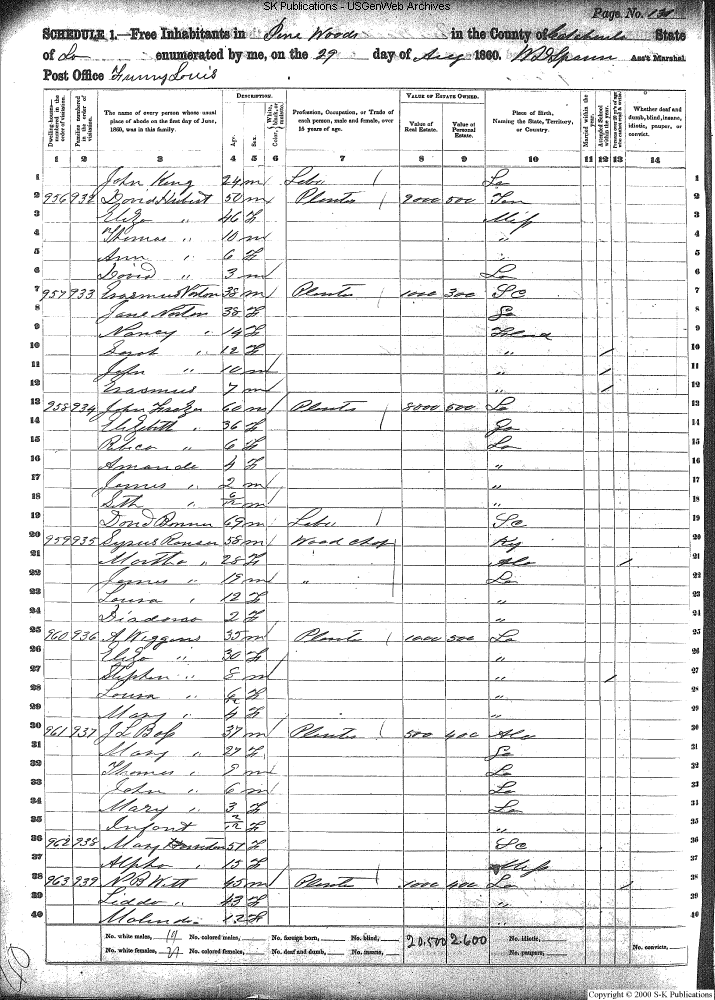 SK Publications - USGenWeb Archives
Page No. 131
SCHEDULE 1.—Free Inhabitants in Pine Woods in the County of Catahoula State
of La enumerated by me, on the 29 day of Aug 1860. Ass't Marshal.
Post Office Funny Louis
Dwelling-houses—numbered in the order of visitation.
Families numbered in the order of visitation.
The name of every person whose usual place of abode on the first day of June, 1860, was in this family.
DESCRIPTION.
Age.
Sex.
Color, { White, black, or mulatto.
Profession, Occupation, or Trade of each person, male and female, over 15 years of age.
VALUE OF ESTATE OWNED.
Value of Real Estate.
Value of Personal Estate.
Place of Birth, Naming the State, Territory, or Country.
Married within the year.
Attended School within the year.
Persons over 20 y'rs of age who cannot read & write.
Whether deaf and dumb, blind, insane, idiotic, pauper, or convict.
1 2 3 4 5 6 7 8 9 10 11 12 13 14
1 John King 24 m Labr / La 1
2 956 932 50 m Planter / 2000 500 Ten 2
3 Eliza " 46 f Miss 3
4 Thomas " 10 m " 4
5 Ann " 6 f 5
6 David " 3 m La 6
7 957 933 Erasmus Norton 38 m Planter / 1000 300 SC 7
8 Jane Norton 38 f 8
9 Nancy " 14 f 9
10 Sarah " 12 f " / 10
11 John " 10 m " / 11
12 Erasmus 7 m " / 12
13 958 934 John 60 m Planter 8000 500 La 13
14 Elizabeth " 36 f Ga 14
15 " 6 f La 15
16 Amanda 4 f " 16
17 James " 2 m " 17
18 Seth " m " 18
19 David Bonner 69 m Labr / SC 19
20 959 935 58 m Wood chop Ky 20
21 Martha " 28 f Ala / 21
22 James " 19 m " La 22
23 Louisa " 12 f " 23
24 2 f " 24
25 960 936 A Wiggins 35 m Planter / 1000 500 La 25
26 Eliza " 30 f " 26
27 Stephen " 8 m " / 27
28 Louisa " 6 f " 28
29 Mary " 4 f " 29
30 961 937 J L Bass 37 m Planter / 500 400 Ala 30
31 Mary " 27 f 31
32 Thomas " 9 m La 32
33 John " 6 m La 33
34 Mary " 3 f La 34
35 Infant f " 35
36 962 938 Mary 51 f SC 36
37 Alpha " 15 f Miss 37
38 963 939 45 m Planter / 1000 400 La / 38
39 " 43 f " 39
40 Malinda 12 f " 40
No. white males, 19 No. colored males, No. foreign born, No. blind, 20,500 2.600 No. idiotic,
No. white females, 21 No. colored females, No. deaf and dumb, No. insane, No. paupers, No. convicts,
Copyright © 2000 S-K Publications